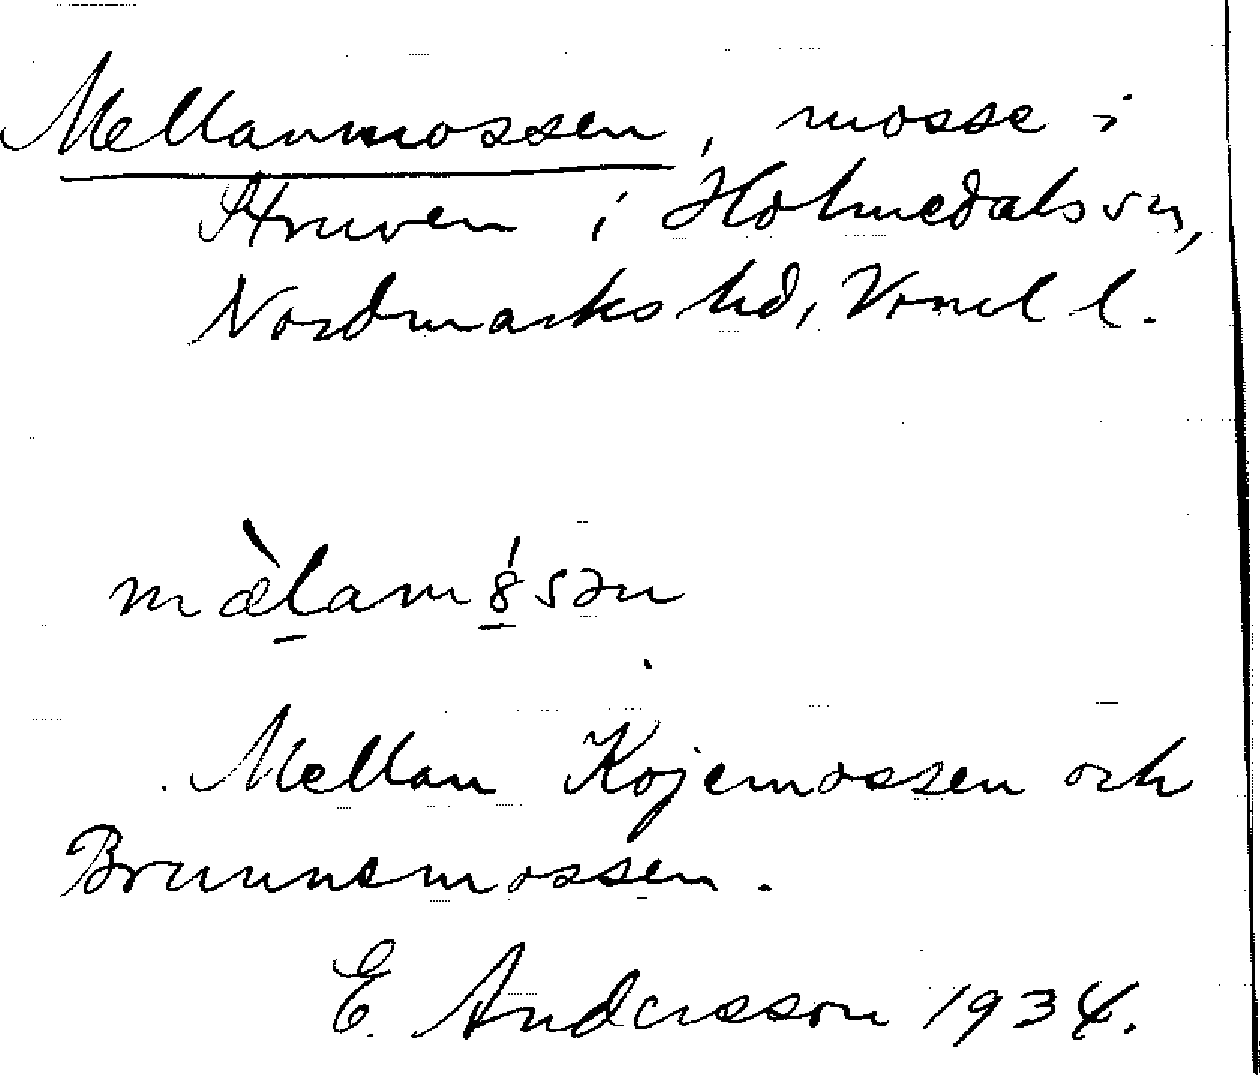 Mellanmossen, mosse i
Hruven i Holmedals sn,
Nordmarks hd, Vrml l.
mæ̀lamó̱sən
Mellan Kojemossen och
Brunnemossen.
E. Andersson 1934.